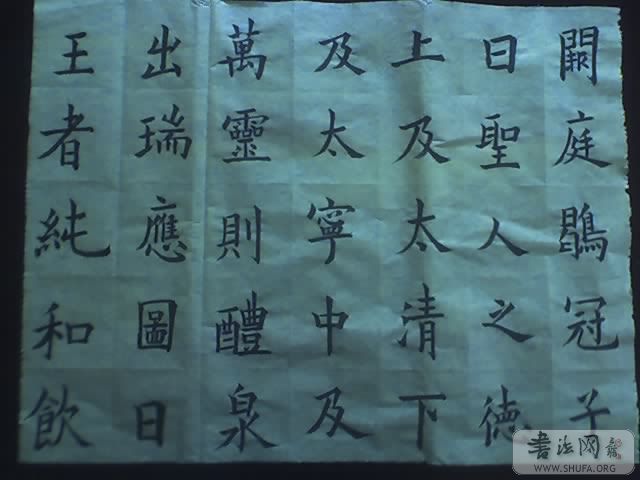 闕庭鶡冠子
曰聖人之徳
上及太清下
及太寧中及
萬靈則醴泉
出瑞應圖曰
王者純和飲
書法网
WWW.SHUFA.ORG